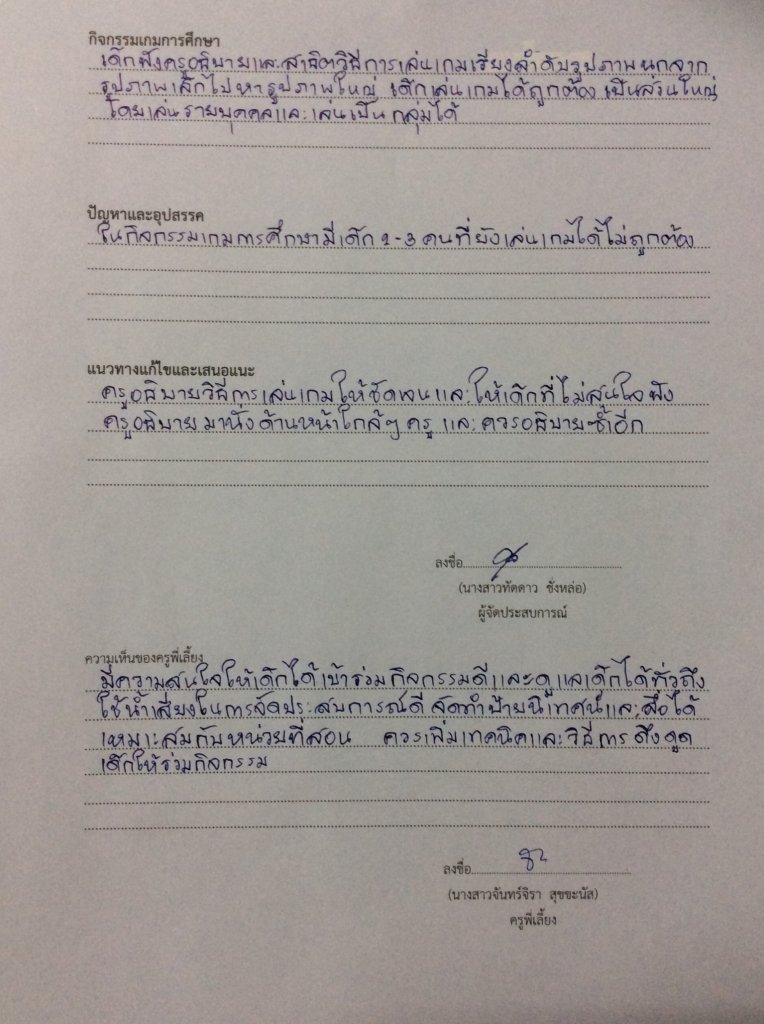 กิจกรรมเกมการศึกษา
เด็กฟังครูอธิบายและสาธิตวิธีการเล่นเกมเรียงลำดับรูปภาพนกจาก
รูปภาพเล็กไปหารูปภาพใหญ่ เด็กเล่นเกมได้ถูกต้อง เป็นส่วนใหญ่
โดยเล่นรายบุคคลและเล่นเป็นกลุ่มได้
ปัญหาและอุปสรรค
ในกิจกรรมเกมการศึกษามีเด็ก 2-3 คนที่ยังเล่นเกมได้ไม่ถูกต้อง
แนวทางแก้ไขและเสนอแนะ
ครูอธิบายวิธีการเล่นเกมให้ชัดเจนและให้เด็กที่ไม่สนใจฟัง
ครูอธิบายมานั่งด้านหน้าใกล้ๆ ครู และควรอธิบายซ้ำอีก
ลงชื่อ
(นางสาวทัตดาว ชั่งหล่อ)
ผู้จัดประสบการณ์
ความเห็นของครูพี่เลี้ยง
มีความสนใจให้เด็กได้เข้าร่วมกิจกรรมดีและดูแลเด็กได้ทั่วถึง
ใช้น้ำเสียงในการจัดประสบการณ์ดี จัดทำป้ายนิเทศน์และสื่อได้
เหมาะสมกับหน่วยที่สอน ควรเพิ่มเทคนิคและวิธีการดึงดูด
เด็กให้ร่วมกิจกรรม
ลงชื่อ
(นางสาวจันทร์จิรา สุขขะนัส)
ครูพี่เลี้ยง